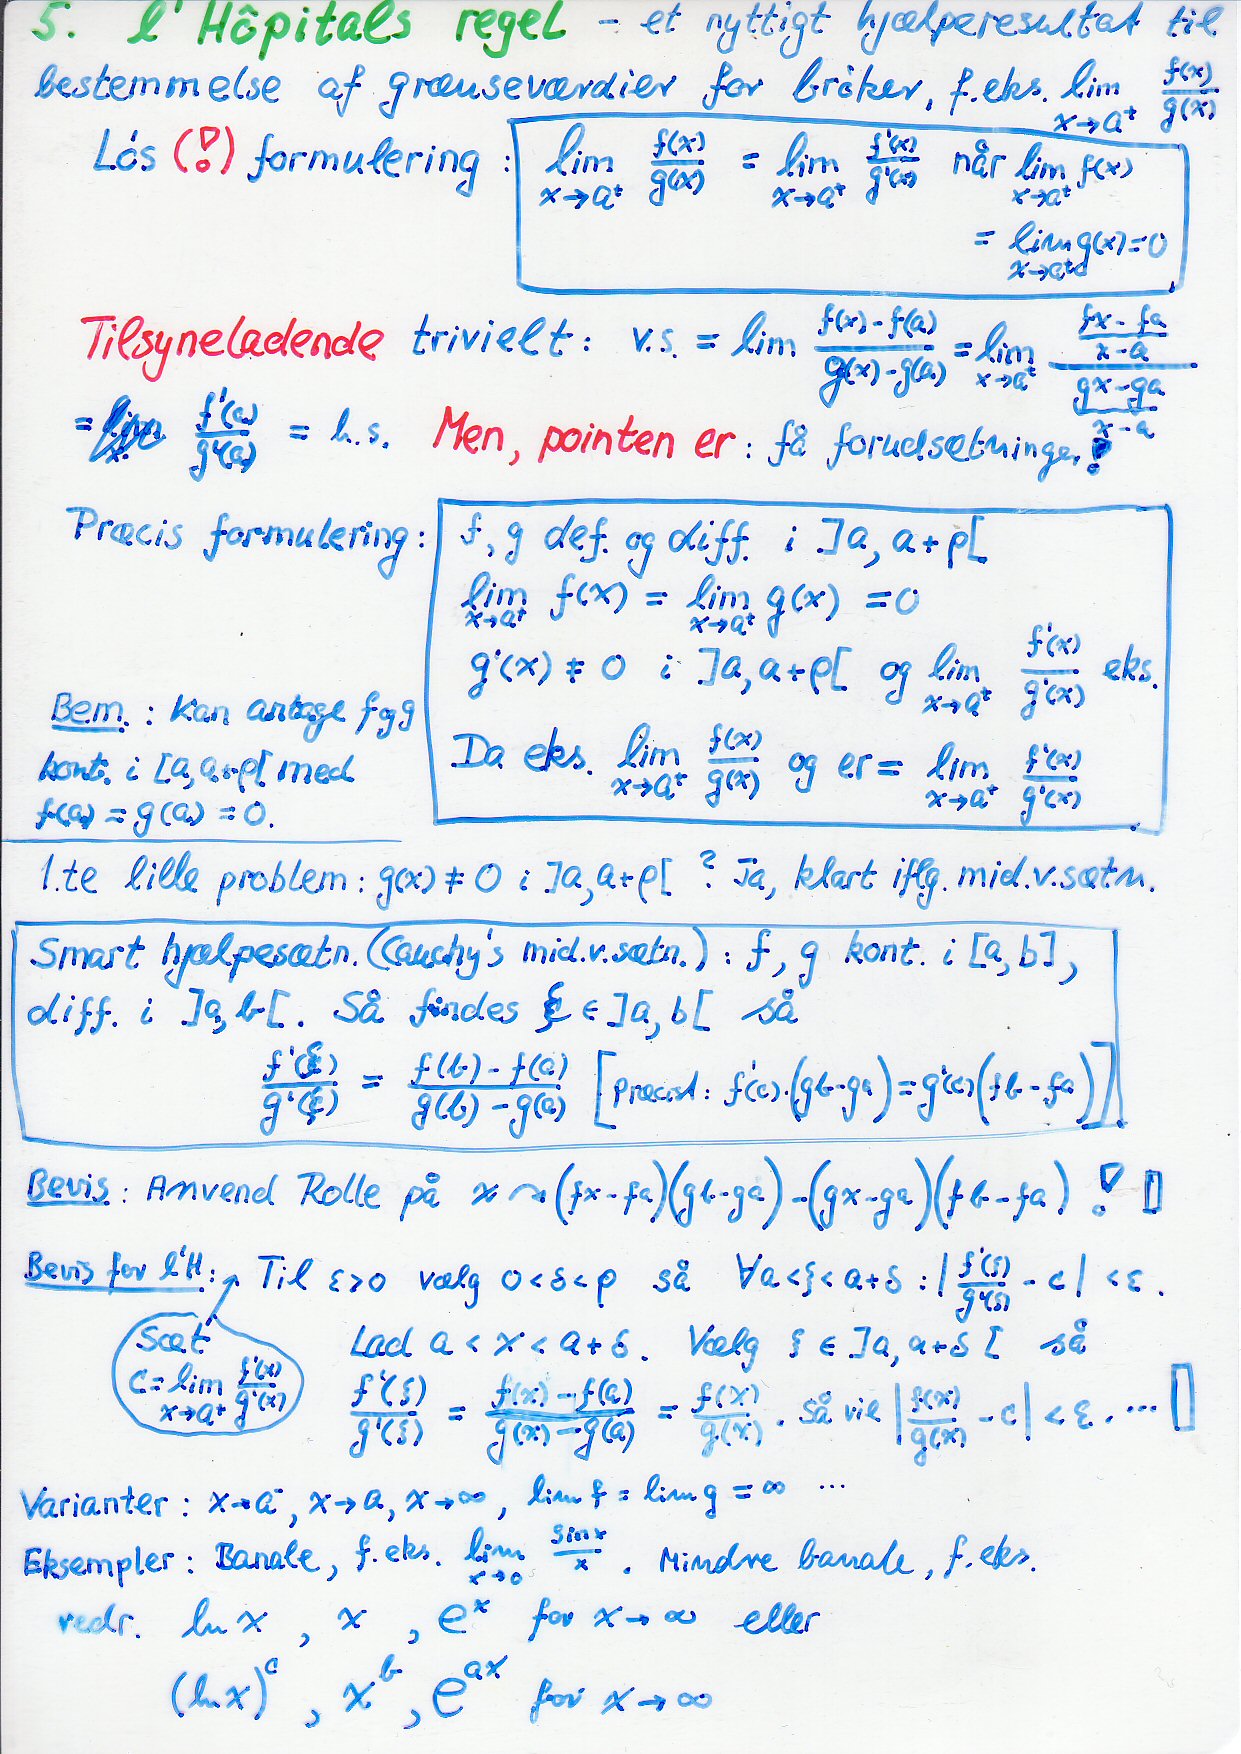 5. l'Hôpitals regel - et nyttigt hjælperesultat til
bestemmelse af grænseværdier for brøker, f.eks. lim x→a⁺ f(x)/g(x)
Løs (!) formulering : lim x→a⁺ f(x)/g(x) = lim x→a⁺ f'(x)/g'(x) når lim x→a⁺ f(x)
= lim x→a⁺ g(x) = 0
Tilsyneladende trivielt : v.s. = lim (f(x)-f(a))/(g(x)-g(a)) = lim x→a⁺ ((fx-fa)/(x-a))/((gx-ga)/(x-a))
= f'(a)/g'(a) = h.s. Men, pointen er : få forudsætninger!
Præcis formulering : f, g def. og diff. i ]a, a+ρ[
lim x→a⁺ f(x) = lim x→a⁺ g(x) = 0
g'(x) ≠ 0 i ]a, a+ρ[ og lim x→a⁺ f'(x)/g'(x) eks.
Da eks. lim x→a⁺ f(x)/g(x) og er = lim x→a⁺ f'(x)/g'(x)
Bem. : Kan antage f og g
kont. i [a, a+ρ[ med
f(a) = g(a) = 0.
1.te lille problem : g(x) ≠ 0 i ]a, a+ρ[ ? Ja, klart iflg. mid.v.sætn.
Smart hjælpesætn. (Cauchy's mid.v.sætn.) : f, g kont. i [a, b],
diff. i ]a, b[. Så findes ξ ∈ ]a, b[ så
f'(ξ)/g'(ξ) = (f(b)-f(a))/(g(b)-g(a)) [Præcist : f'(c)·(gb-ga) = g'(c)(fb-fa)]
Bevis : Anvend Rolle på x ↷ (fx-fa)(gb-ga) - (gx-ga)(fb-fa) ! □
Bevis for l'H : Til ε>0 vælg 0<δ<ρ så ∀a<ξ<a+δ : |f'(ξ)/g'(ξ) - c| < ε.
Sæt
c = lim x→a⁺ f'(x)/g'(x)
Lad a < x < a+δ. Vælg ξ ∈ ]a, a+δ[ så
f'(ξ)/g'(ξ) = (f(x)-f(a))/(g(x)-g(a)) = f(x)/g(x). Så vil |f(x)/g(x) - c| < ε. ... □
Varianter : x→a⁻, x→a, x→∞, lim f = lim g = ∞ ...
Eksempler : Banale, f.eks. lim x→0 sin x/x. Mindre banale, f.eks.
vedr. ln x , x , eˣ for x→∞ eller
(ln x)^c , x^b , e^ax for x→∞